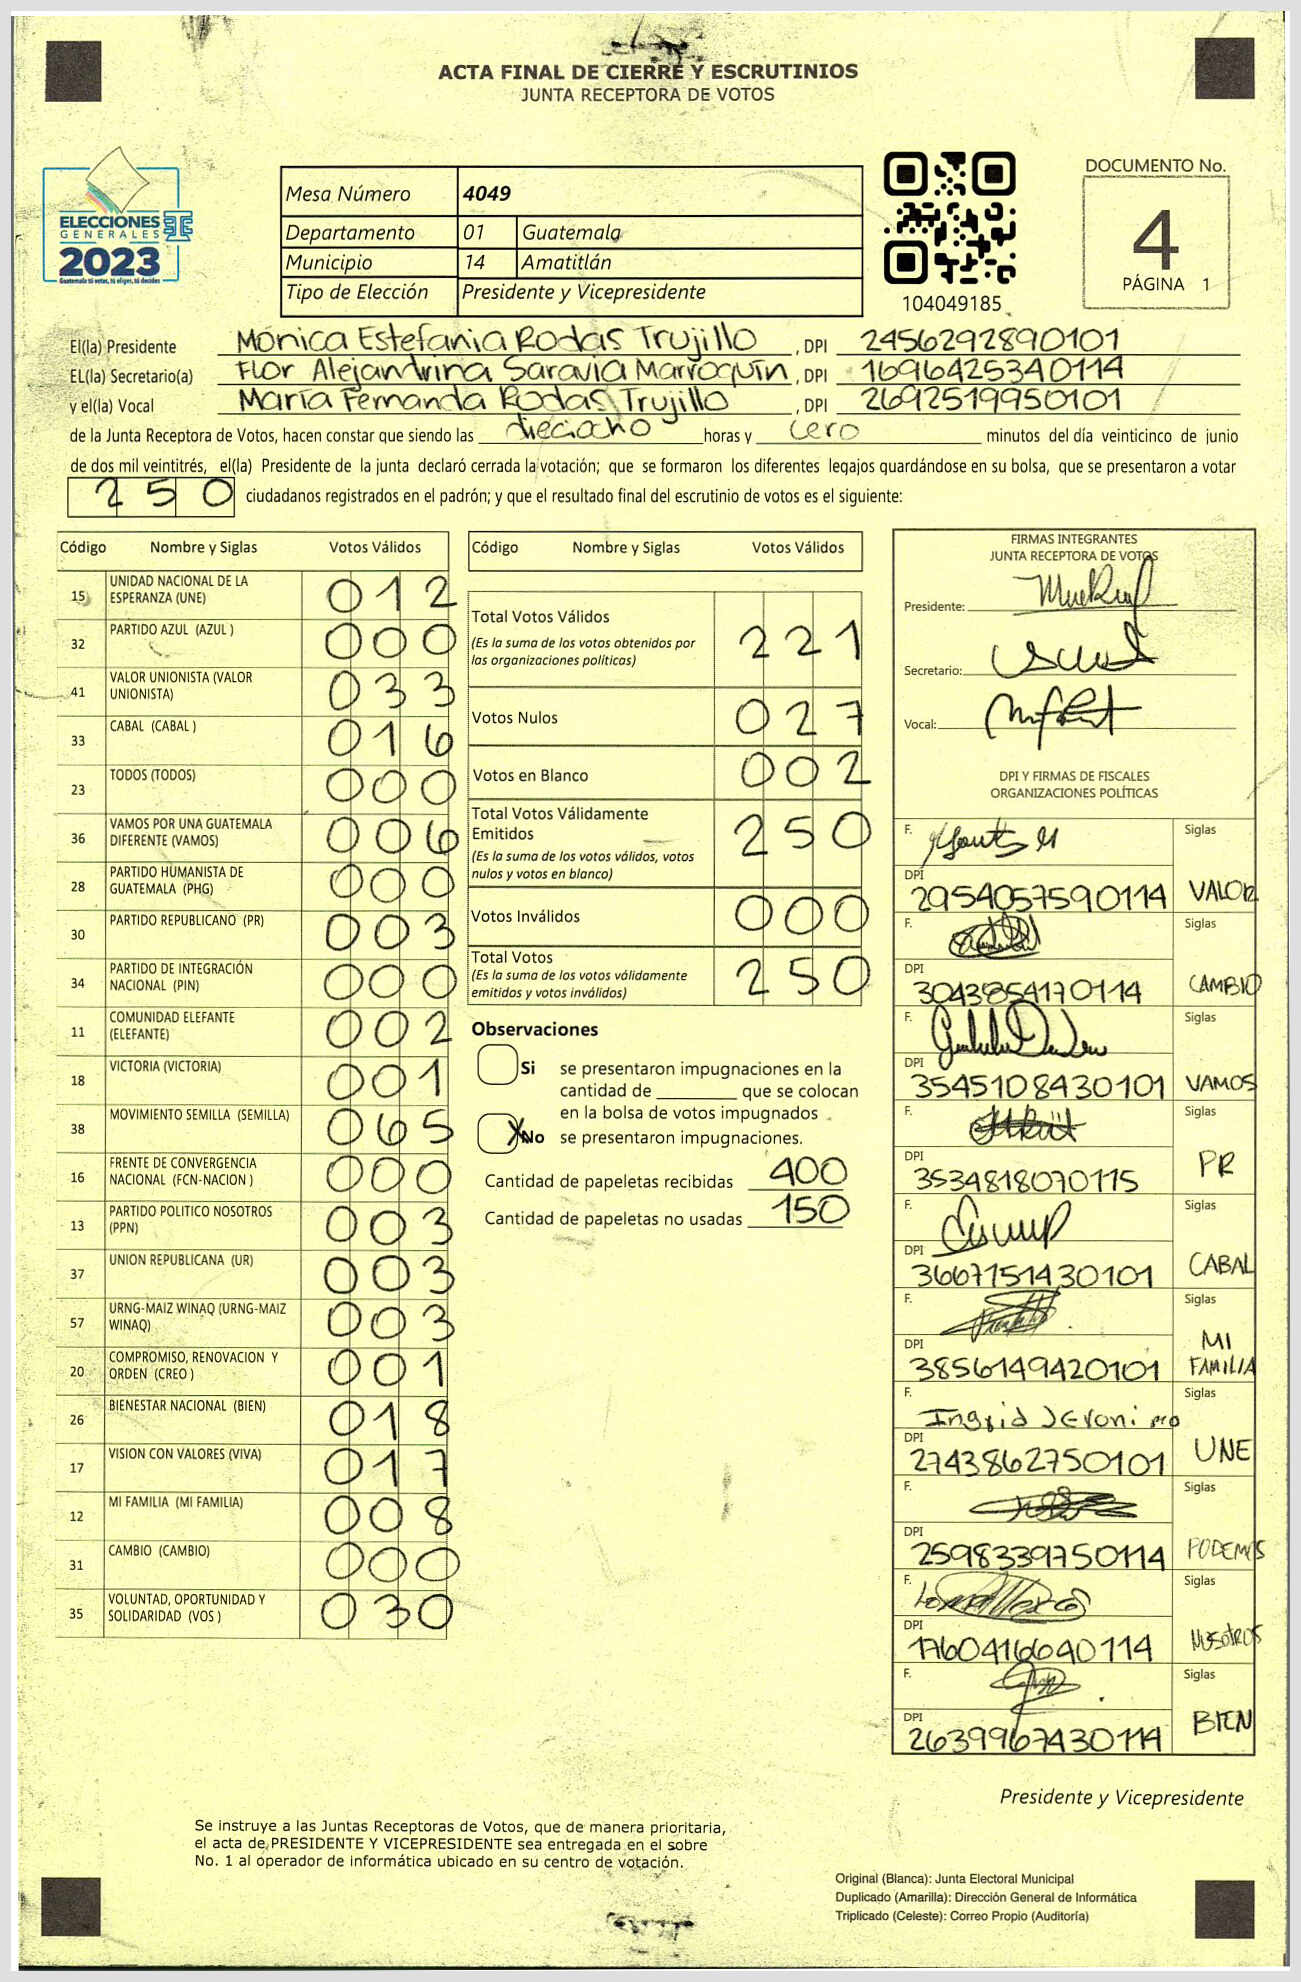 ACTA FINAL DE CIERRE Y ESCRUTINIOS
JUNTA RECEPTORA DE VOTOS
ELECCIONES
GENERALES
2023
Guatemala tú votas, tú eliges, tú decides
Mesa Número 4049
Departamento 01 Guatemala
Municipio 14 Amatitlán
Tipo de Elección Presidente y Vicepresidente
104049185
DOCUMENTO No.
4
PÁGINA 1
El(la) Presidente Mónica Estefania Rodas Trujillo, DPI 2456292890101
EL(la) Secretario(a) Flor Alejandrina Saravia Marroquín, DPI 1696425340114
y el(la) Vocal María Fernanda Rodas Trujillo, DPI 2692519950101
de la Junta Receptora de Votos, hacen constar que siendo las dieciocho horas y cero minutos del día veinticinco de junio
de dos mil veintitrés, el(la) Presidente de la junta declaró cerrada la votación; que se formaron los diferentes legajos guardándose en su bolsa, que se presentaron a votar
250 ciudadanos registrados en el padrón; y que el resultado final del escrutinio de votos es el siguiente:
Código Nombre y Siglas Votos Válidos
15 UNIDAD NACIONAL DE LA ESPERANZA (UNE) 012
32 PARTIDO AZUL (AZUL ) 000
41 VALOR UNIONISTA (VALOR UNIONISTA) 033
33 CABAL (CABAL ) 016
23 TODOS (TODOS) 000
36 VAMOS POR UNA GUATEMALA DIFERENTE (VAMOS) 006
28 PARTIDO HUMANISTA DE GUATEMALA (PHG) 000
30 PARTIDO REPUBLICANO (PR) 003
34 PARTIDO DE INTEGRACIÓN NACIONAL (PIN) 000
11 COMUNIDAD ELEFANTE (ELEFANTE) 002
18 VICTORIA (VICTORIA) 001
38 MOVIMIENTO SEMILLA (SEMILLA) 065
16 FRENTE DE CONVERGENCIA NACIONAL (FCN-NACION ) 000
13 PARTIDO POLITICO NOSOTROS (PPN) 003
37 UNION REPUBLICANA (UR) 003
57 URNG-MAIZ WINAQ (URNG-MAIZ WINAQ) 003
20 COMPROMISO, RENOVACION Y ORDEN (CREO ) 001
26 BIENESTAR NACIONAL (BIEN) 018
17 VISION CON VALORES (VIVA) 017
12 MI FAMILIA (MI FAMILIA) 008
31 CAMBIO (CAMBIO) 000
35 VOLUNTAD, OPORTUNIDAD Y SOLIDARIDAD (VOS ) 030
Código Nombre y Siglas Votos Válidos
Total Votos Válidos 221
(Es la suma de los votos obtenidos por
las organizaciones políticas)
Votos Nulos 027
Votos en Blanco 002
Total Votos Válidamente
Emitidos 250
(Es la suma de los votos válidos, votos
nulos y votos en blanco)
Votos Inválidos 000
Total Votos 250
(Es la suma de los votos válidamente
emitidos y votos inválidos)
Observaciones
Si se presentaron impugnaciones en la
cantidad de ________ que se colocan
en la bolsa de votos impugnados
X No se presentaron impugnaciones.
Cantidad de papeletas recibidas 400
Cantidad de papeletas no usadas 150
FIRMAS INTEGRANTES
JUNTA RECEPTORA DE VOTOS
Presidente:
Secretario:
Vocal:
DPI Y FIRMAS DE FISCALES
ORGANIZACIONES POLÍTICAS
F. Siglas
DPI 2954057590114 VALOR
F. Siglas
DPI 3043854170114 CAMBIO
F. Siglas
DPI 3545108430101 VAMOS
F. Siglas
DPI 3534818070115 PR
F. Siglas
DPI 3667151430101 CABAL
F. Siglas
DPI 3856149420101 MI FAMILIA
F. Ingrid Jeronimo Siglas
DPI 2743862750101 UNE
F. Siglas
DPI 2598339750114 PODEMOS
F. Siglas
DPI 1760416640114 NUSOTROS
F. Siglas
DPI 2639967430114 BIEN
Presidente y Vicepresidente
Se instruye a las Juntas Receptoras de Votos, que de manera prioritaria,
el acta de PRESIDENTE Y VICEPRESIDENTE sea entregada en el sobre
No. 1 al operador de informática ubicado en su centro de votación.
Original (Blanca): Junta Electoral Municipal
Duplicado (Amarilla): Dirección General de Informática
Triplicado (Celeste): Correo Propio (Auditoría)